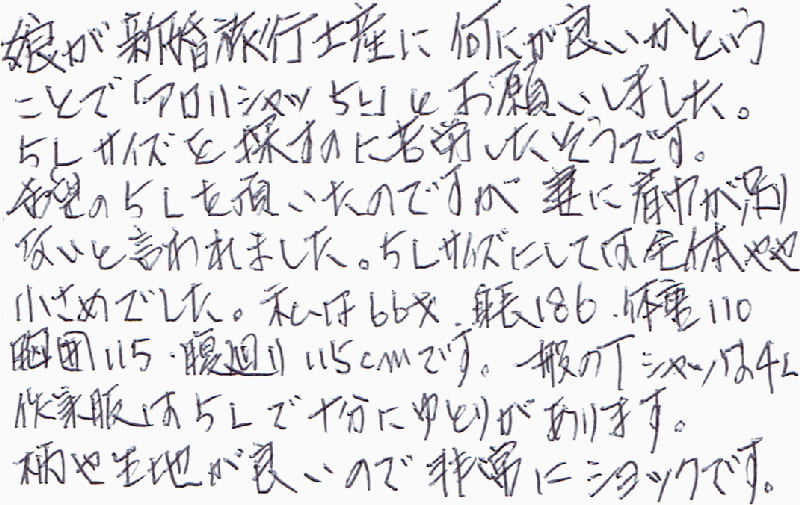 娘が新婚旅行土産に何にが良いかという
ことで「アロハシャツ5L」とお願いしました。
5Lサイズを探すのに苦労したそうです。
希望の5Lを頂いたのですが妻に着丈が足り
ないと言われました。5Lサイズにしては全体やや
小さめでした。私は66才.身長186.体重110
胸囲115・腹廻り115cmです。一般のTシャツは4L
作業服は5Lで十分にゆとりがあります。
柄や生地が良いので非常にショックです。